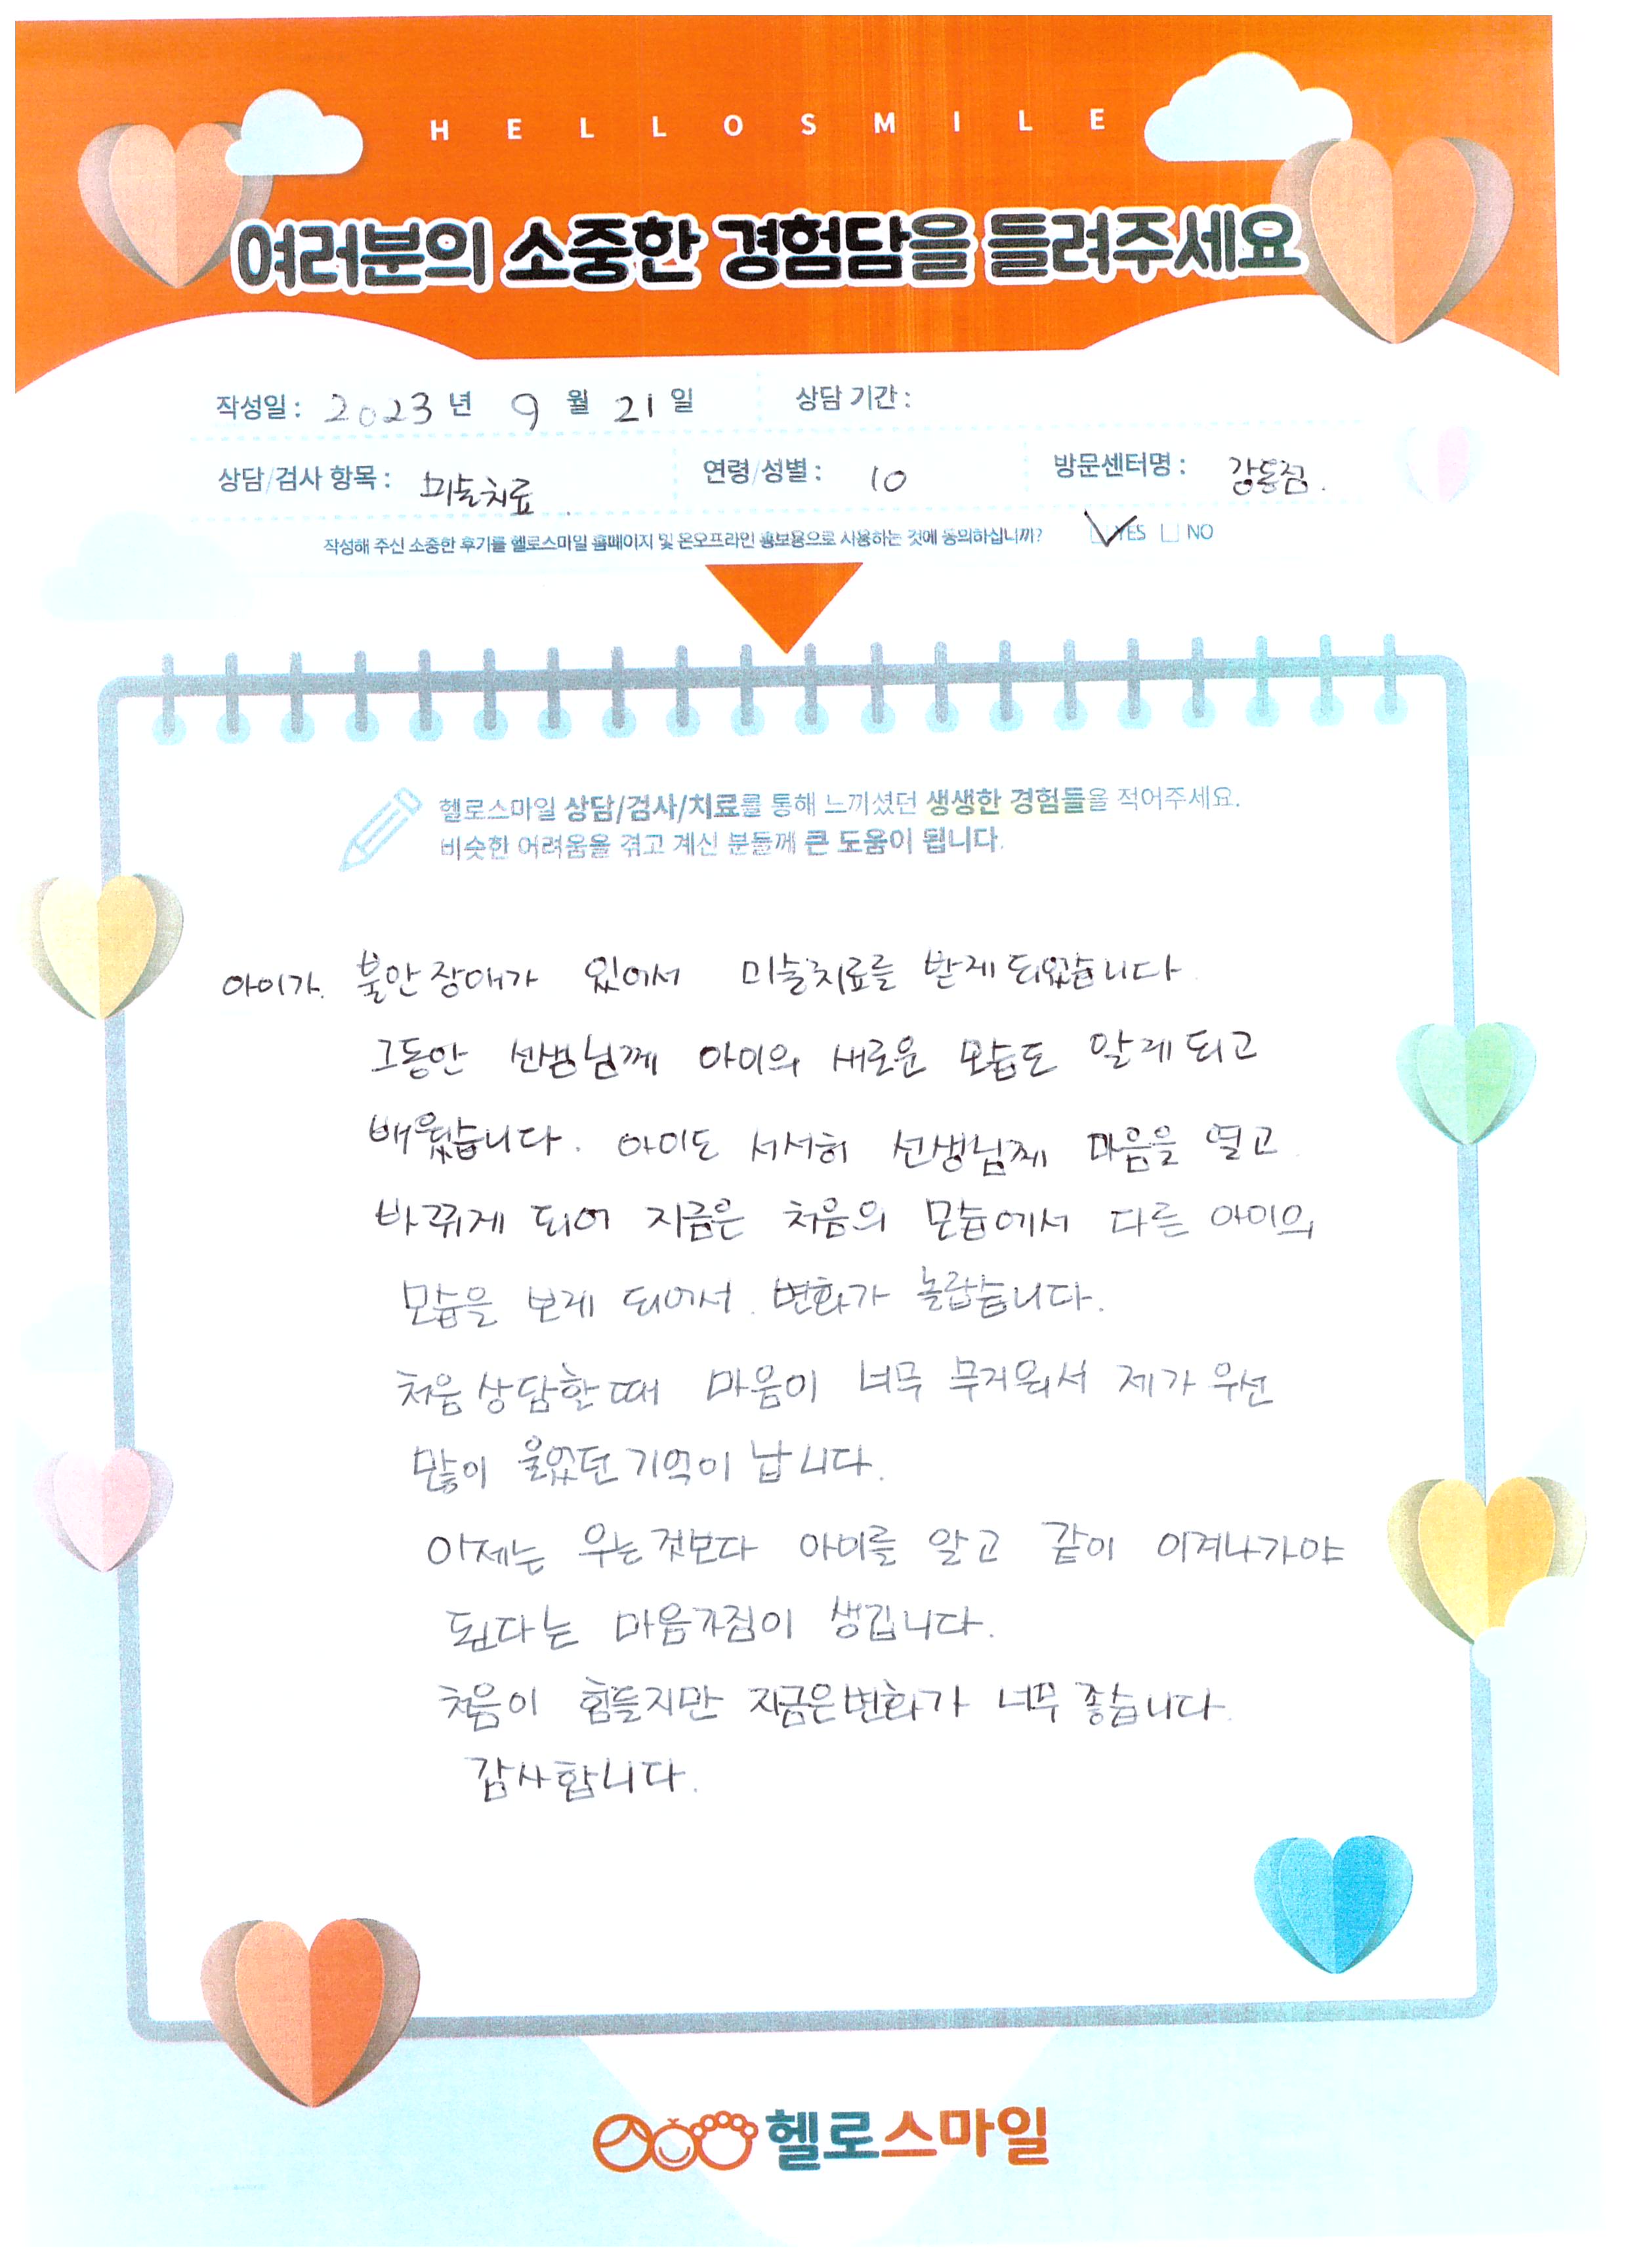 HELLOSMILE
여러분의 소중한 경험담을 들려주세요
작성일 : 2023 년 9 월 21 일 상담 기간 :
상담/검사 항목 : 미술치료 연령/성별 : 10 방문센터명 : 강동점.
작성해 주신 소중한 후기를 헬로스마일 홈페이지 및 온오프라인 홍보용으로 사용하는 것에 동의하십니까? YES NO
헬로스마일 상담/검사/치료를 통해 느끼셨던 생생한 경험들을 적어주세요.
비슷한 어려움을 겪고 계신 분들께 큰 도움이 됩니다.
아이가. 불안장애가 있어서 미술치료를 받게되었습니다.
그동안 선생님께 아이의 새로운 모습도 알게되고
배웠습니다. 아이도 서서히 선생님께 마음을 열고
바뀌게 되어 지금은 처음의 모습에서 다른 아이의
모습을 보게 되어서. 변화가 놀랍습니다.
처음상담할때 마음이 너무 무거워서 제가 우선
많이 울었던기억이 납니다.
이제는 우는것보다 아이를 알고 같이 이겨나가야
된다는 마음가짐이 생깁니다.
처음이 힘들지만 지금은변화가 너무좋습니다.
감사합니다.
헬로스마일